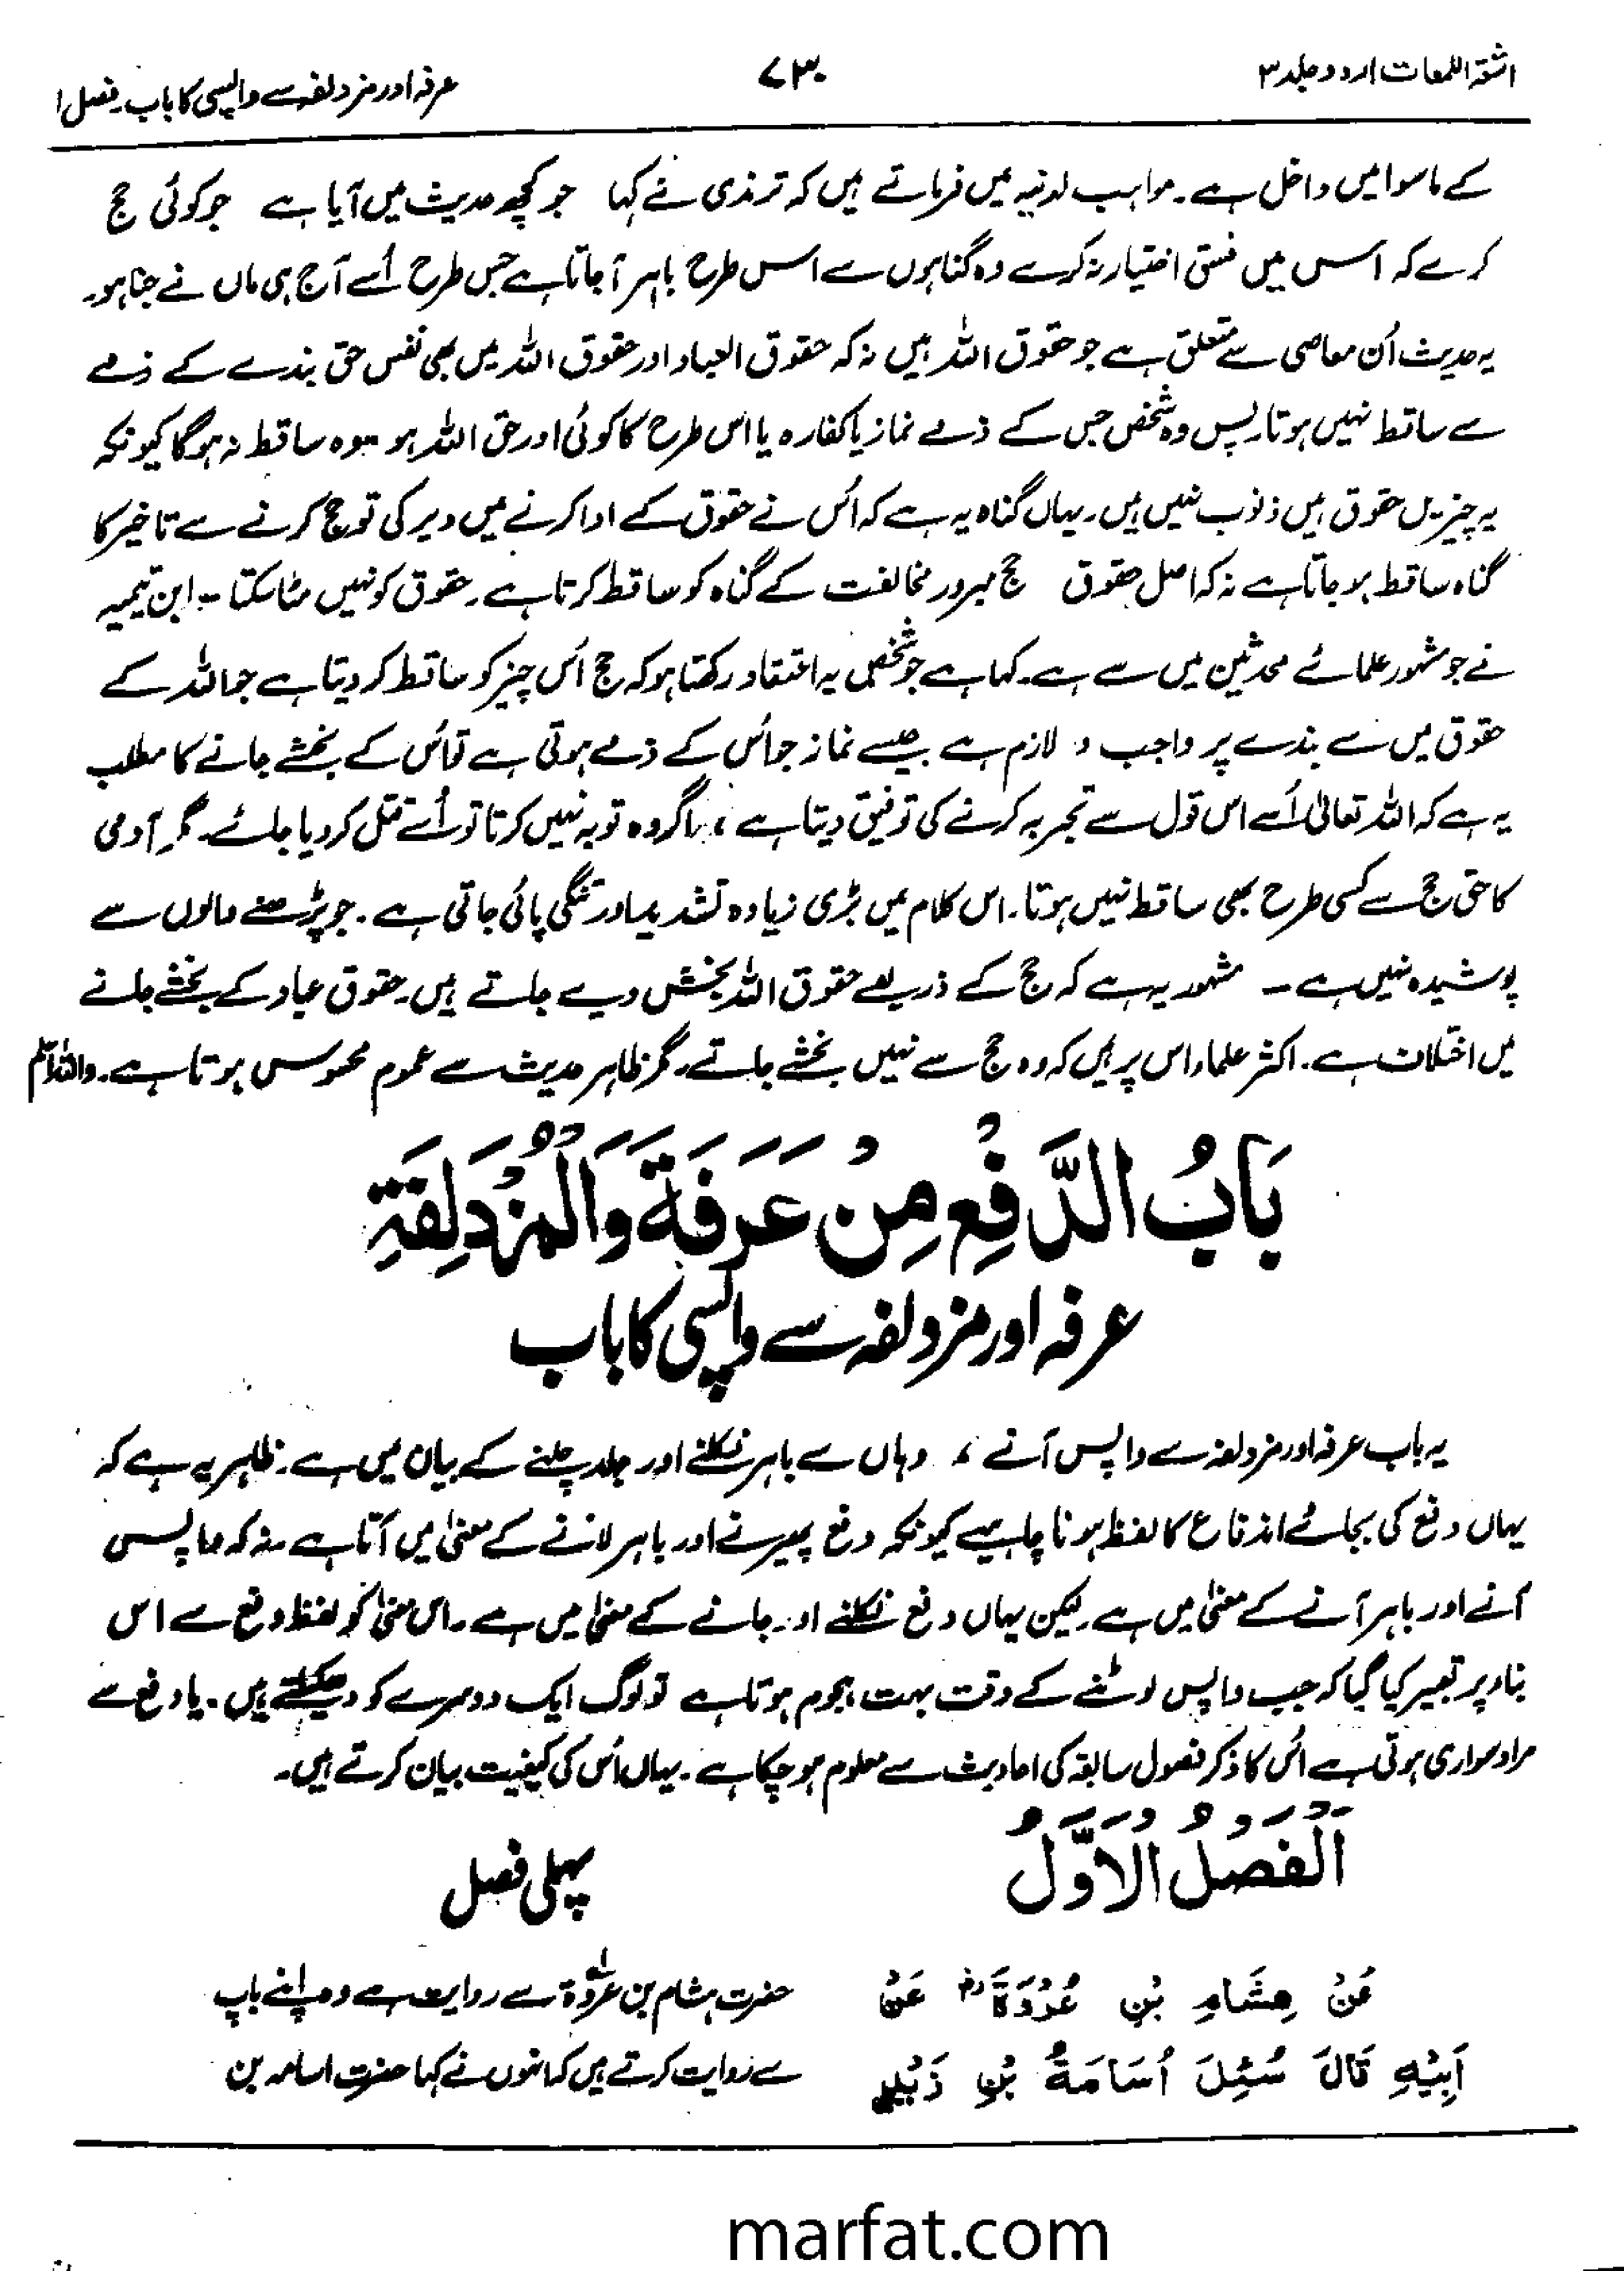 اشعۃ اللمعات اردو جلد ۳
۷۳۰
عرفہ اور مزدلفہ سے واپسی کا باب۔ فصل ۱
کے ماسوا میں داخل ہے۔ مواہب لدنیہ میں فرماتے ہیں کہ ترمذی نے کہا جو کچھ حدیث میں آیا ہے جو کوئی حج
کرے کہ اُس میں فسق اختیار نہ کرے وہ گناہوں سے اس طرح باہر آ جاتا ہے جس طرح اُسے آج ہی ماں نے جنا ہو۔
یہ حدیث اُن معاصی سے متعلق ہے جو حقوق اللہ ہیں نہ کہ حقوق العباد اور حقوق اللہ میں بھی نفس حق بندے کے ذمے
سے ساقط نہیں ہوتا۔ پس وہ شخص جس کے ذمے نماز یا کفارہ یا اس طرح کا کوئی اور حق اللہ ہو ہو وہ ساقط نہ ہوگا کیونکہ
یہ چیزیں حقوق ہیں ذنوب نہیں ہیں۔ یہاں گناہ یہ ہے کہ اُس نے حقوق کے ادا کرنے میں دیر کی تو حج کرنے سے تاخیر کا
گناہ ساقط ہو جاتا ہے نہ کہ اصل حقوق حج مبرور مخالفت کے گناہ کو ساقط کرتا ہے۔ حقوق کو نہیں مٹا سکتا۔ ابن تیمیہ
نے جو مشہور علمائے محدثین میں سے ہے۔ کہا ہے جو شخص یہ اعتقاد رکھتا ہو کہ حج اُس چیز کو ساقط کر دیتا ہے جو اللہ کے
حقوق میں سے بندے پر واجب و لازم ہے جیسے نماز جو اُس کے ذمے ہوتی ہے تو اُس کے بخشے جانے کا مطلب
یہ ہے کہ اللہ تعالیٰ اُسے اس قول سے تجربہ کرنے کی توفیق دیتا ہے، اگر وہ توبہ نہیں کرتا تو اُسے قتل کر دیا جائے۔ مگر آدمی
کا حق حج سے کسی طرح بھی ساقط نہیں ہوتا۔ اس کلام میں بڑی زیادہ تشدید اور تنگی پائی جاتی ہے۔ جو پڑھنے والوں سے
پوشیدہ نہیں ہے۔ مشہور یہ ہے کہ حج کے ذریعے حقوق اللہ بخش دیے جاتے ہیں۔ حقوق عباد کے بخشے جانے
میں اختلاف ہے۔ اکثر علماء اس پر ہیں کہ وہ حج سے نہیں بخشے جاتے۔ مگر ظاہر حدیث سے عموم محسوس ہوتا ہے۔ واللہ اعلم
بَابُ الدَّفْعِ مِنْ عَرَفَةَ وَالْمُزْدَلِفَةِ
عرفہ اور مزدلفہ سے واپسی کا باب
یہ باب عرفہ اور مزدلفہ سے واپس آنے، وہاں سے باہر نکلنے اور جلد چلنے کے بیان میں ہے۔ ظاہر یہ ہے کہ
یہاں دفع کی بجائے اندفاع کا لفظ ہونا چاہیے کیونکہ دفع پھیرنے اور باہر لانے کے معنیٰ میں آتا ہے۔ نہ کہ واپس
آنے اور باہر آنے کے معنیٰ میں ہے۔ لیکن یہاں دفع نکلنے اور جانے کے معنیٰ میں ہے۔ اس معنیٰ کو لفظ دفع سے اس
بناء پر تعبیر کیا گیا کہ جب واپس لوٹنے کے وقت بہت ہجوم ہوتا ہے تو لوگ ایک دوسرے کو دھکیلتے ہیں۔ یا دفع سے
مراد سواری ہوتی ہے اُس کا ذکر فصول سابقہ کی احادیث سے معلوم ہو چکا ہے۔ یہاں اُس کی کیفیت بیان کرتے ہیں۔
اَلْفَصْلُ الْاَوَّلُ
پہلی فصل
عَنْ هِشَامِ بْنِ عُرْوَةَ رض عَنْ
اَبِيْهِ قَالَ سُئِلَ اُسَامَةُ بْنُ زَيْدٍ
حضرت ہشام بن عروۃ سے روایت ہے وہ اپنے باپ
سے روایت کرتے ہیں کہ انہوں نے کہا حضرت اسامہ بن
marfat.com